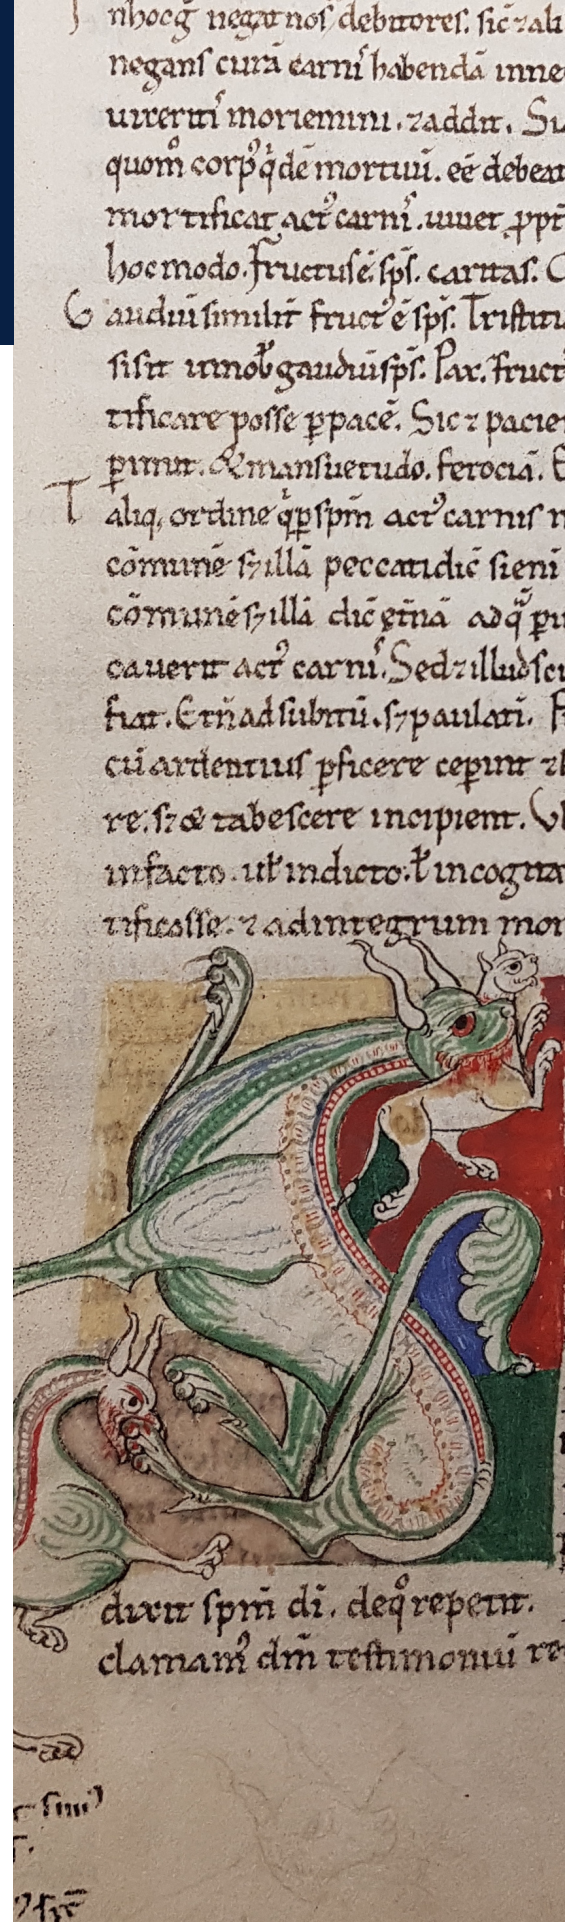 nhocq; negat nos debitores. sic ⁊ ali
negans curā carnis habendā inne
uixeritis moriemini. ⁊ addit. Si
quomo corpꝰ qͥdē mortuū. eē debeat
mortificat actꝰ carnis. uiuet. ꝓpt
hoc modo. fructus ē sp̄s. caritas. G
Gaudiū similit̄ fructꝰ ē sp̄s. Tristiti
sisit gaudiū sp̄s. Pax. Fruct
tificare posse ꝑ pacē. Sic ⁊ pacie
ꝑimit. & mansuetudo. ferociā.
Taliq; ordine qͥ ꝑ sp̄m actꝰ carnis
cōmunē sꝫ illā peccati dic̄ si eni
cōmunē sꝫ illā dic̄ ęt̄nā ad q̄
cauerit actꝰ carnis. Sed ⁊ illud sci
fiat. Et n̄ ad subitū. sꝫ paulati.
cū ardentius ꝓficere ceperint
re. sꝫ & tabescere incipient.
in facto. ul̄ in dicto. ł in cogita
tificasse. ⁊ ad integrum mor
dixit sp̄m di. de qͦ repetit.
clamamꝰ dm̄ testimoniū re